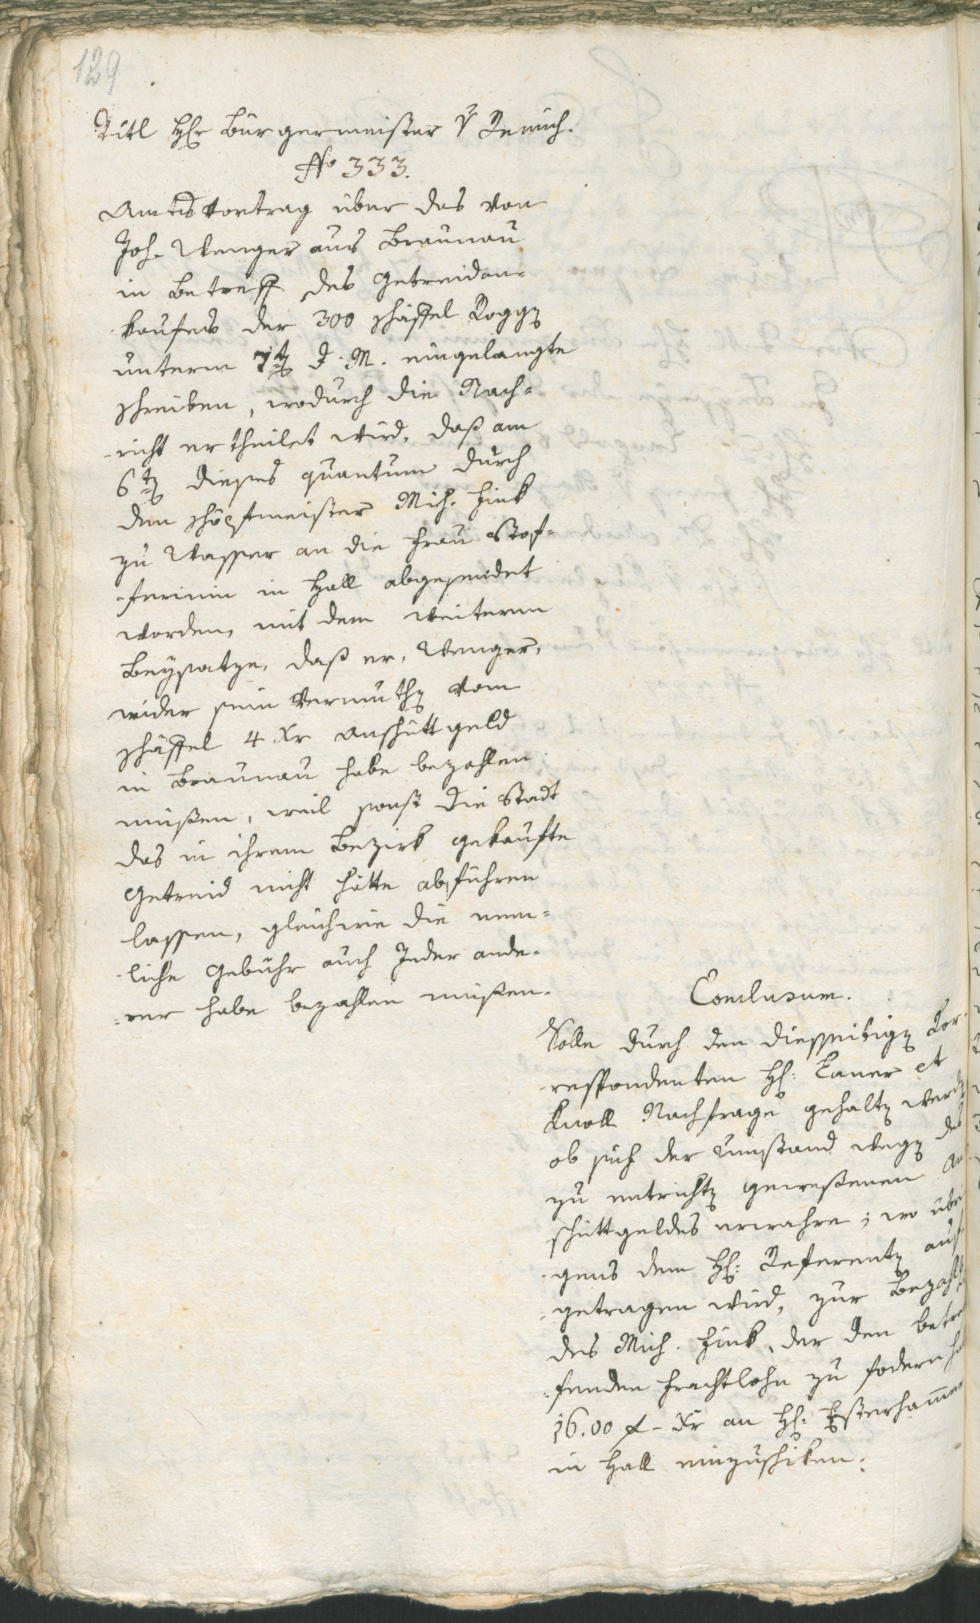 129
Titl Hr Bürgermeister v Remich.
No 333.
Amtsvortrag über das von
Joh. Wenger aus Braunau
in Betreff des Getreidan-
kaufens der 300 schäffel Rogg
unterm 7t d. M. eingelangte
schreiben, wodurch die Nach-
richt ertheilet wird, daß am
6t dieses quantum durch
den schöpfmeister Mich. Fink
zu Wasser an die Frau Stof-
ferinin in Hall abgesendet
worden, mit dem weiterm
Beysatze, daß er, Wenger,
wider sein Vermuth vom
schäffel 4 Xr Anschüttgeld
in Braunau habe bezahlen
müßen, weil sonst die Stadt
das in ihrem Bezirk gekaufte
Getreid nicht hätte abführen
lassen, gleichwie die nem-
liche Gebühr auch Jeder ande-
rer habe bezahlen müßen.
Conclusum.
Solle durch den diesseitig Cor-
respondenten H: Caner et
Knoll Nachfrage gehalt werd
ob sich der Umstand weg des
zu entricht gewesenen An
schüttgeldes erwahre; wo übri
gens dem H: Referent auf
getragen wird, zur Bezahl
des Mich. Fink, der den betre
fenden Frachtlohn zu fodern ha
16.00 f - Xr an H: Esterhammer
in Hall einzuschiken.